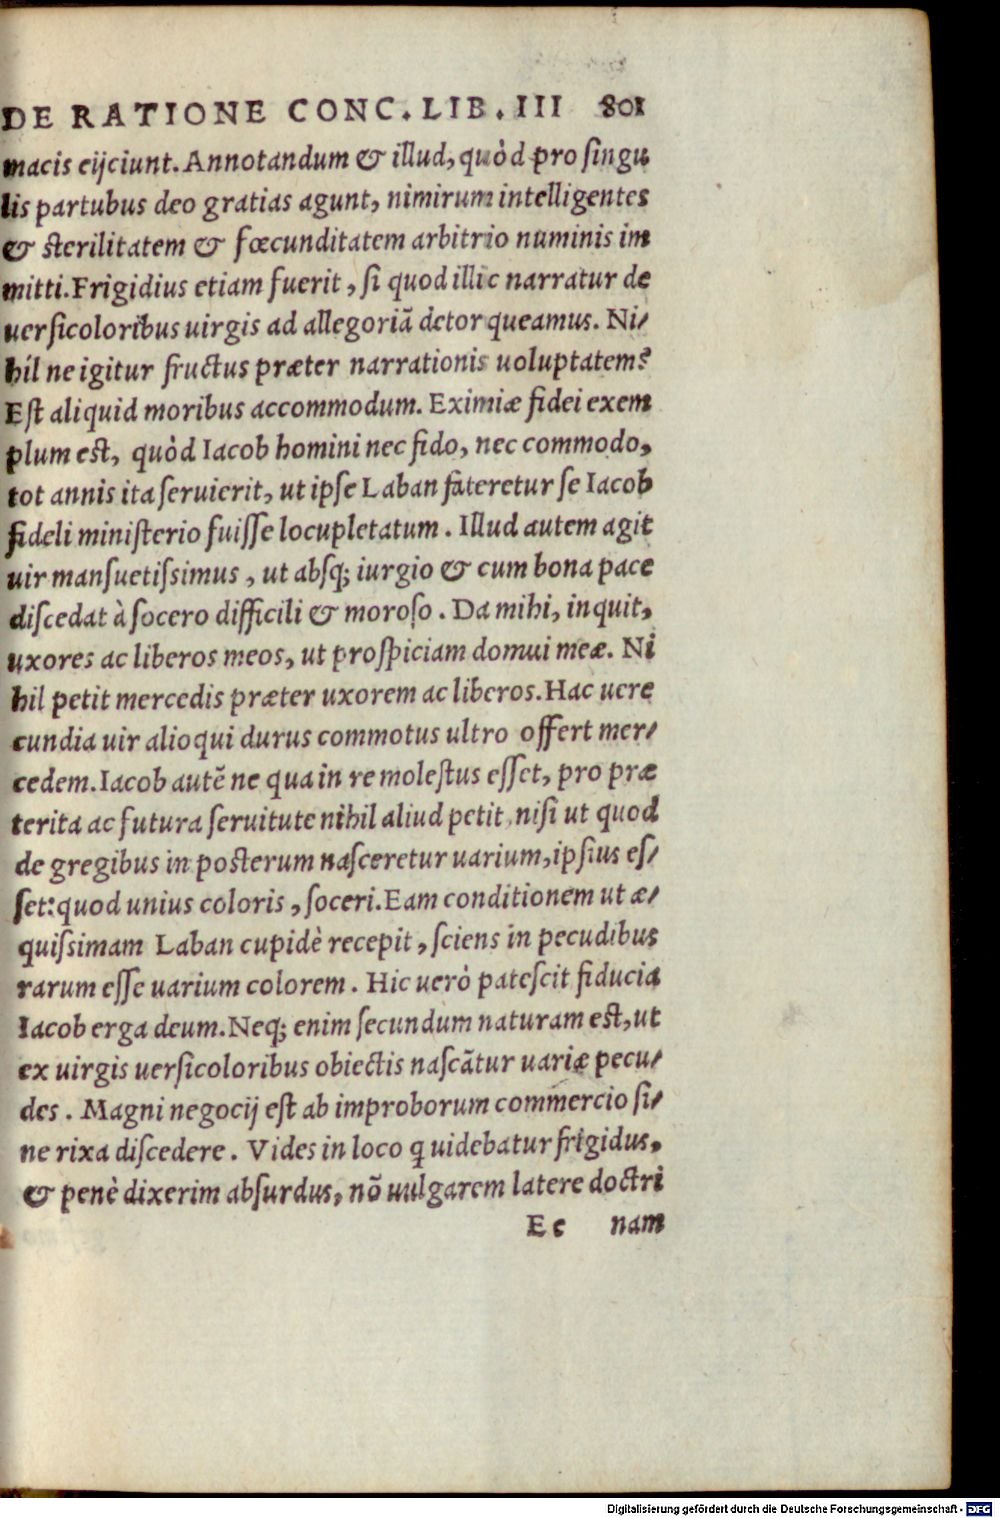 DE RATIONE CONC. LIB. III 801
macis eijciunt. Annotandum & illud, quòd pro singu
lis partubus deo gratias agunt, nimirum intelligentes
& sterilitatem & fœcunditatem arbitrio numinis im
mitti. Frigidius etiam fuerit, si quod illic narratur de
uersicoloribus uirgis ad allegoriā detorqueamus. Ni/
hil ne igitur fructus præter narrationis uoluptatem?
Est aliquid moribus accommodum. Eximiæ fidei exem
plum est, quòd Iacob homini nec fido, nec commodo,
tot annis ita seruierit, ut ipse Laban fateretur se Iacob
fideli ministerio fuisse locupletatum. Illud autem agit
uir mansuetissimus, ut absq; iurgio & cum bona pace
discedat à socero difficili & moroso. Da mihi, inquit,
uxores ac liberos meos, ut prospiciam domui meæ. Ni
hil petit mercedis præter uxorem ac liberos. Hac uere
cundia uir alioqui durus commotus ultro offert mer/
cedem. Iacob autē ne qua in re molestus esset, pro præ
terita ac futura seruitute nihil aliud petit, nisi ut quod
de gregibus in posterum nasceretur uarium, ipsius es/
set: quod unius coloris, soceri. Eam conditionem ut æ/
quissimam Laban cupidè recepit, sciens in pecudibus
rarum esse uarium colorem. Hic uerò patescit fiducia
Iacob erga deum. Neq; enim secundum naturam est, ut
ex uirgis uersicoloribus obiectis nascātur uariæ pecu/
des. Magni negocij est ab improborum commercio si/
ne rixa discedere. Vides in loco q uidebatur frigidus,
& penè dixerim absurdus, nō uulgarem latere doctri
Ee nam
Digitalisierung gefördert durch die Deutsche Forschungsgemeinschaft - DFG